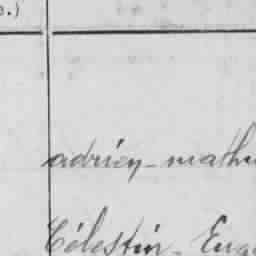 adrien-mathu
Célestin-Euge